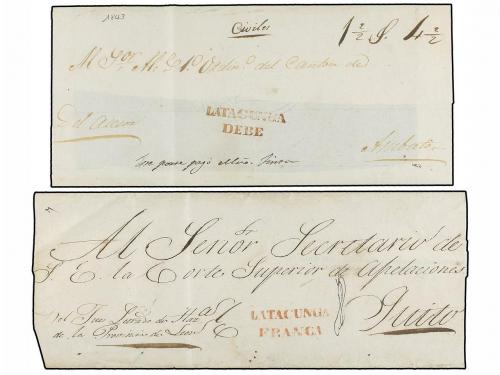 1843
Civiles
1 2/2 S. 4 2/2
M. Sor. del Canton de
LATACUNGA
DEBE
Del Ascen
Ambato
pagó
Al Señor Secretario de
S. E. la Corte Superior de Apelaciones
del Juez Letrado de Haz
de la Provincia de Leon
LATACUNGA
FRANCA
Quito